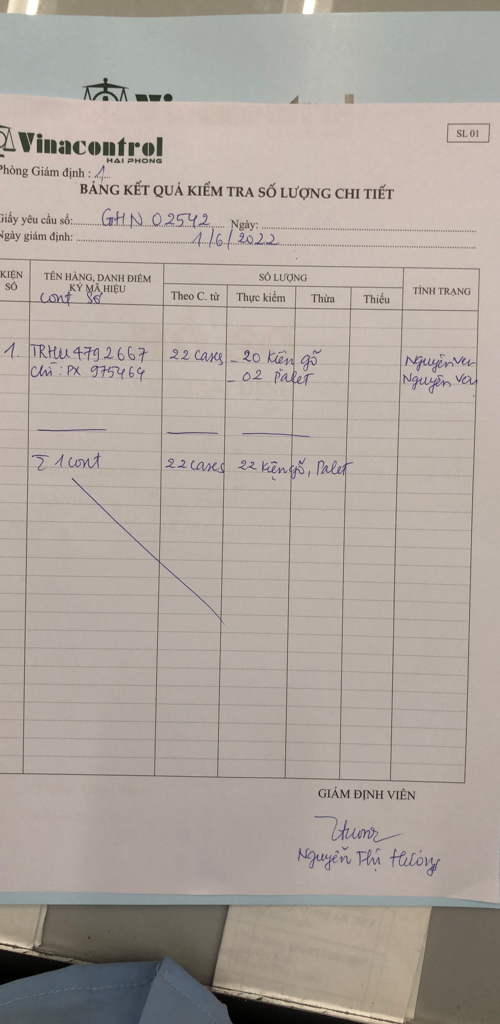 Vinacontrol
HAI PHONG
SL 01
Phòng Giám định : 1
BẢNG KẾT QUẢ KIỂM TRA SỐ LƯỢNG CHI TIẾT
Giấy yêu cầu số: GHN 02542 Ngày:
Ngày giám định: 1/6/2022
KIỆN SỐ
TÊN HÀNG, DANH ĐIỂM
KÝ MÃ HIỆU
Cont Số
SỐ LƯỢNG
Theo C. từ Thực kiểm Thừa Thiếu
TÌNH TRẠNG
1. TRHU4792667 22 cases - 20 kiện gỗ Nguyên vẹn
chì : PX 975464 - 02 Palet Nguyên vẹn
Σ 1 cont 22 cases 22 kiện gỗ, Palet
GIÁM ĐỊNH VIÊN
Hương
Nguyễn Thị Hương